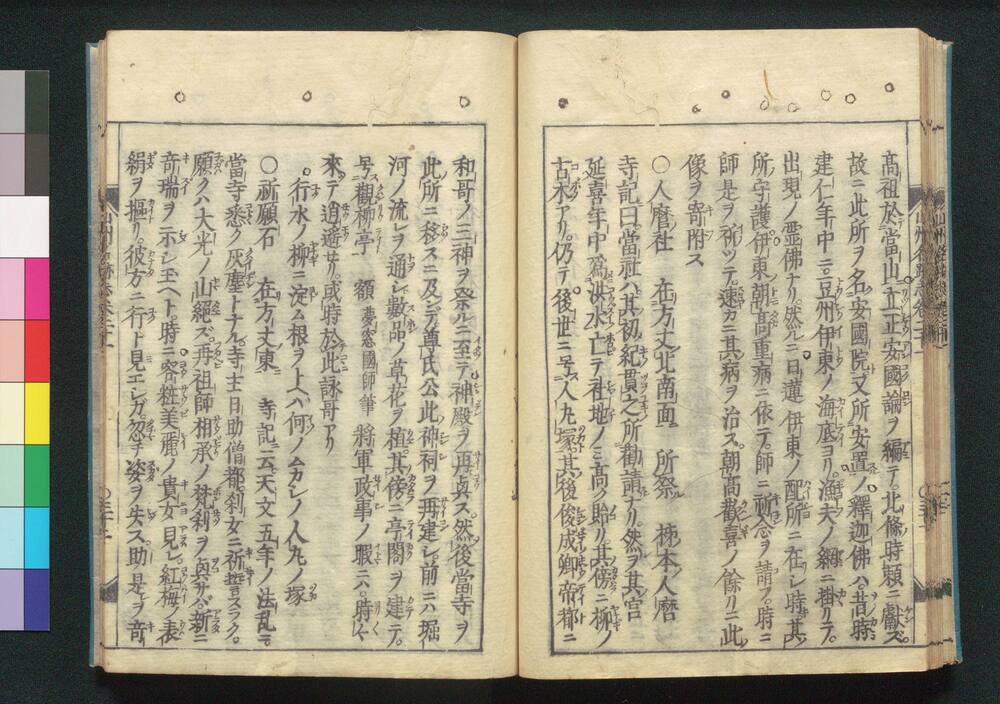 髙祖於當山立正安國論ヲ編テ。北條時頼ニ獻ズ。
故ニ此所ヲ名安國院又所安置ノ釋迦佛ハ。昔時
建仁年中ニ豆州伊東ノ海底ヨリ。漁夫ノ網ニ掛リテ。
出現ノ霊佛ナリ。然ルニ日蓮伊東ノ配所ニ在シ時。其
所守護伊東朝髙重病ニ依テ。師ニ祈念ヲ請フ。時ニ
師是ヲ祈ツテ。速カニ其病ヲ治ス。朝髙歡喜ノ餘リニ此
像ヲ寄附ス
〇人麿社 在方丈北南面 所祭 柿本人麿
寺記曰。當社ハ其初。紀貫之所勸請ナリ。然ヲ其宮
延喜年中為洪水亡テ社地ノミ髙ク殘リ。其傍ニ柳ノ
古木アリ。仍テ後世ニ号ス人丸塚其後俊成卿帝都ニ
和哥ノ三神ヲ祭ルニ至テ神殿ヲ再真ス。然後當寺ヲ
此所ニ移スニ及デ。尊氏公此神祠ヲ再建シ。前ニハ堀
河ノ流レヲ通シ。數品ノ草花ヲ植。其傍ニ亭閣ヲ建テ。
号觀柳亭 額 夢窓國師筆 將軍政事ノ暇ニハ。時々
來テ逍遥セリ。或時於此詠哥アリ
行水ノ柳ニ淀ム根ヲトヘハ何ノムカシノ人丸ノ塚
〇祈願石 在方丈東 寺記ニ云。天文五年ノ法乱ニ
當寺悉ク灰塵トナル。寺主日助僧都刹女ニ祈誓スラク。
願クハ大光ノ山絕ズ。再祖師相承ノ梵刹ヲ興サバ。新ニ
竒瑞ヲ示シ玉ヘト。時ニ容粧美麗ノ貴女見レ。紅梅ノ表
絹ヲ掘リ。彼方ニ行ト見エシガ。忽チ姿ヲ失ス。助是ヲ竒